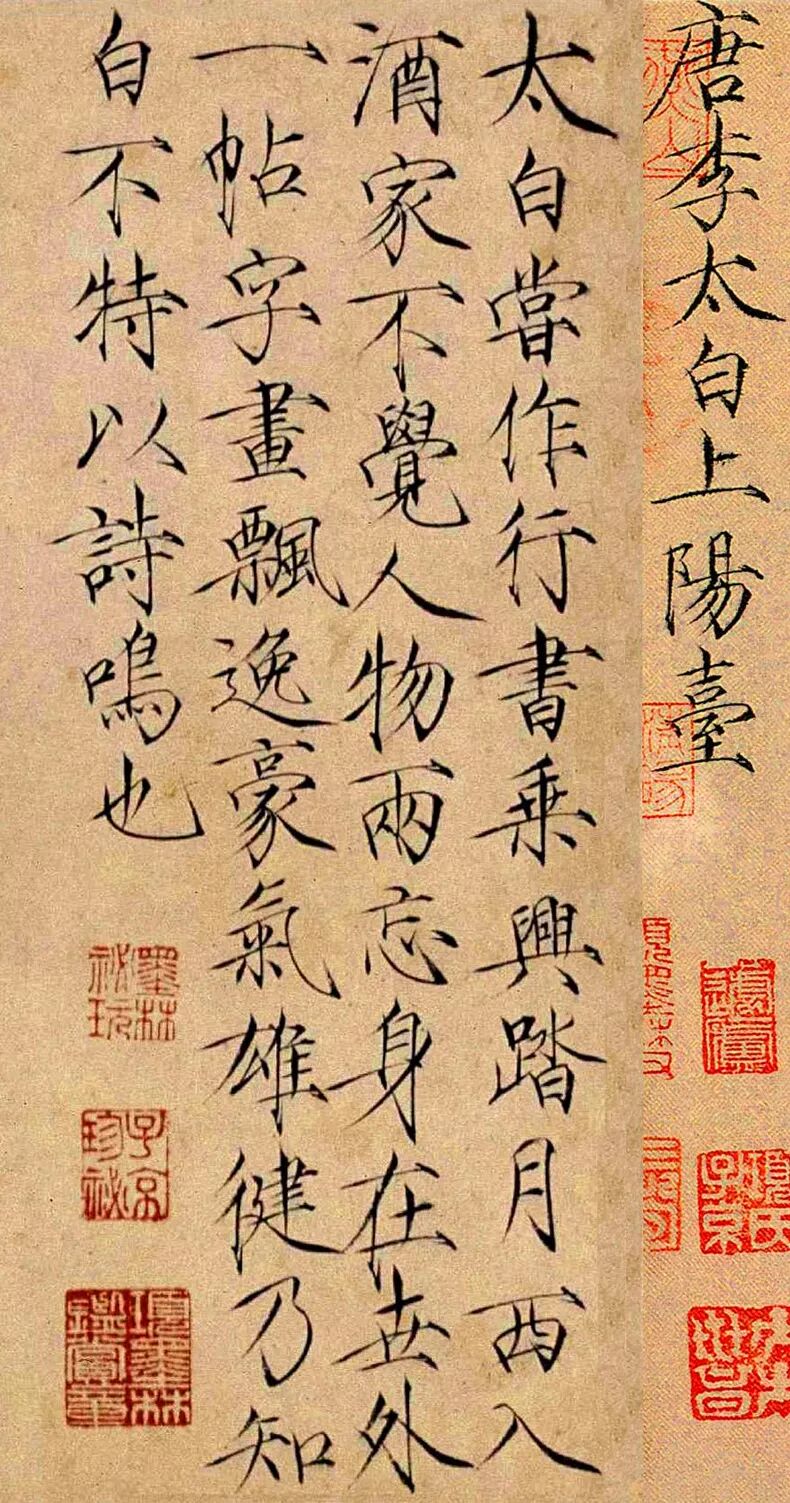 唐李太白上陽臺
項氏子京
太白嘗作行書乘興踏月西入
酒家不覺人物兩忘身在世外
一帖字畫飄逸豪氣雄徤乃知
白不特以詩鳴也
墨林祕玩
子京珍祕
項墨林鑑賞章